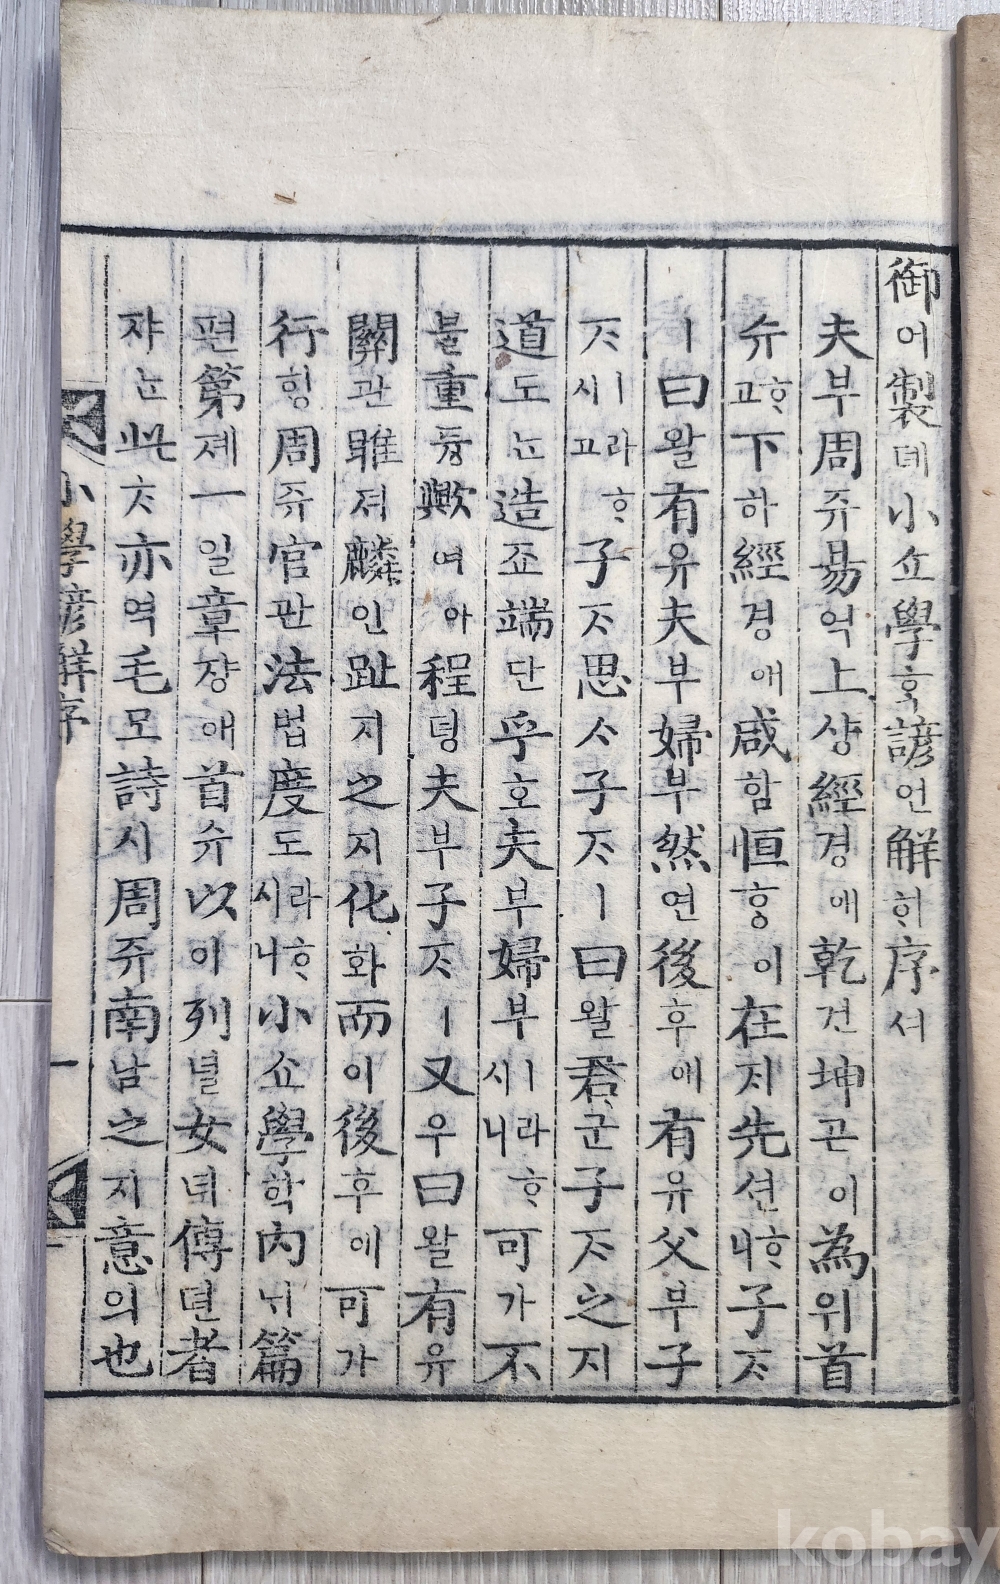 御어製뎨小쇼學ᄒᆞᆨ諺언解ᄒᆡ序셔
夫부周쥬易역上샹經경애乾건坤곤이為위首
슈ᄒᆞ고下하經경애咸함恒ᄒᆞᆼ이在ᄌᆡ先션ᄒᆞ니子ᄌᆞ
ㅣ曰왈有유夫부婦부然연後후에有유父부子
ᄌᆞㅣ라ᄒᆞ시고子ᄌᆞ思ᄉᆞ子ᄌᆞㅣ曰왈君군子ᄌᆞ之지
道도ᄂᆞᆫ造조端단乎호夫부婦부ㅣ라ᄒᆞ시니可가不
불重듕歟여아程뎡夫부子ᄌᆞㅣ又우曰왈有유
關관雎져麟인趾지之지化화而이後후에可가
行ᄒᆡᆼ周쥬官관法법度도라ᄒᆞ시니小쇼學학內ᄂᆡ篇
편第졔一일章쟝애首슈以이列녈女녀傳뎐者
쟈ᄂᆞᆫ此ᄎᆞ亦역毛모詩시周쥬南남之지意의也
小學諺解序 一
kobay